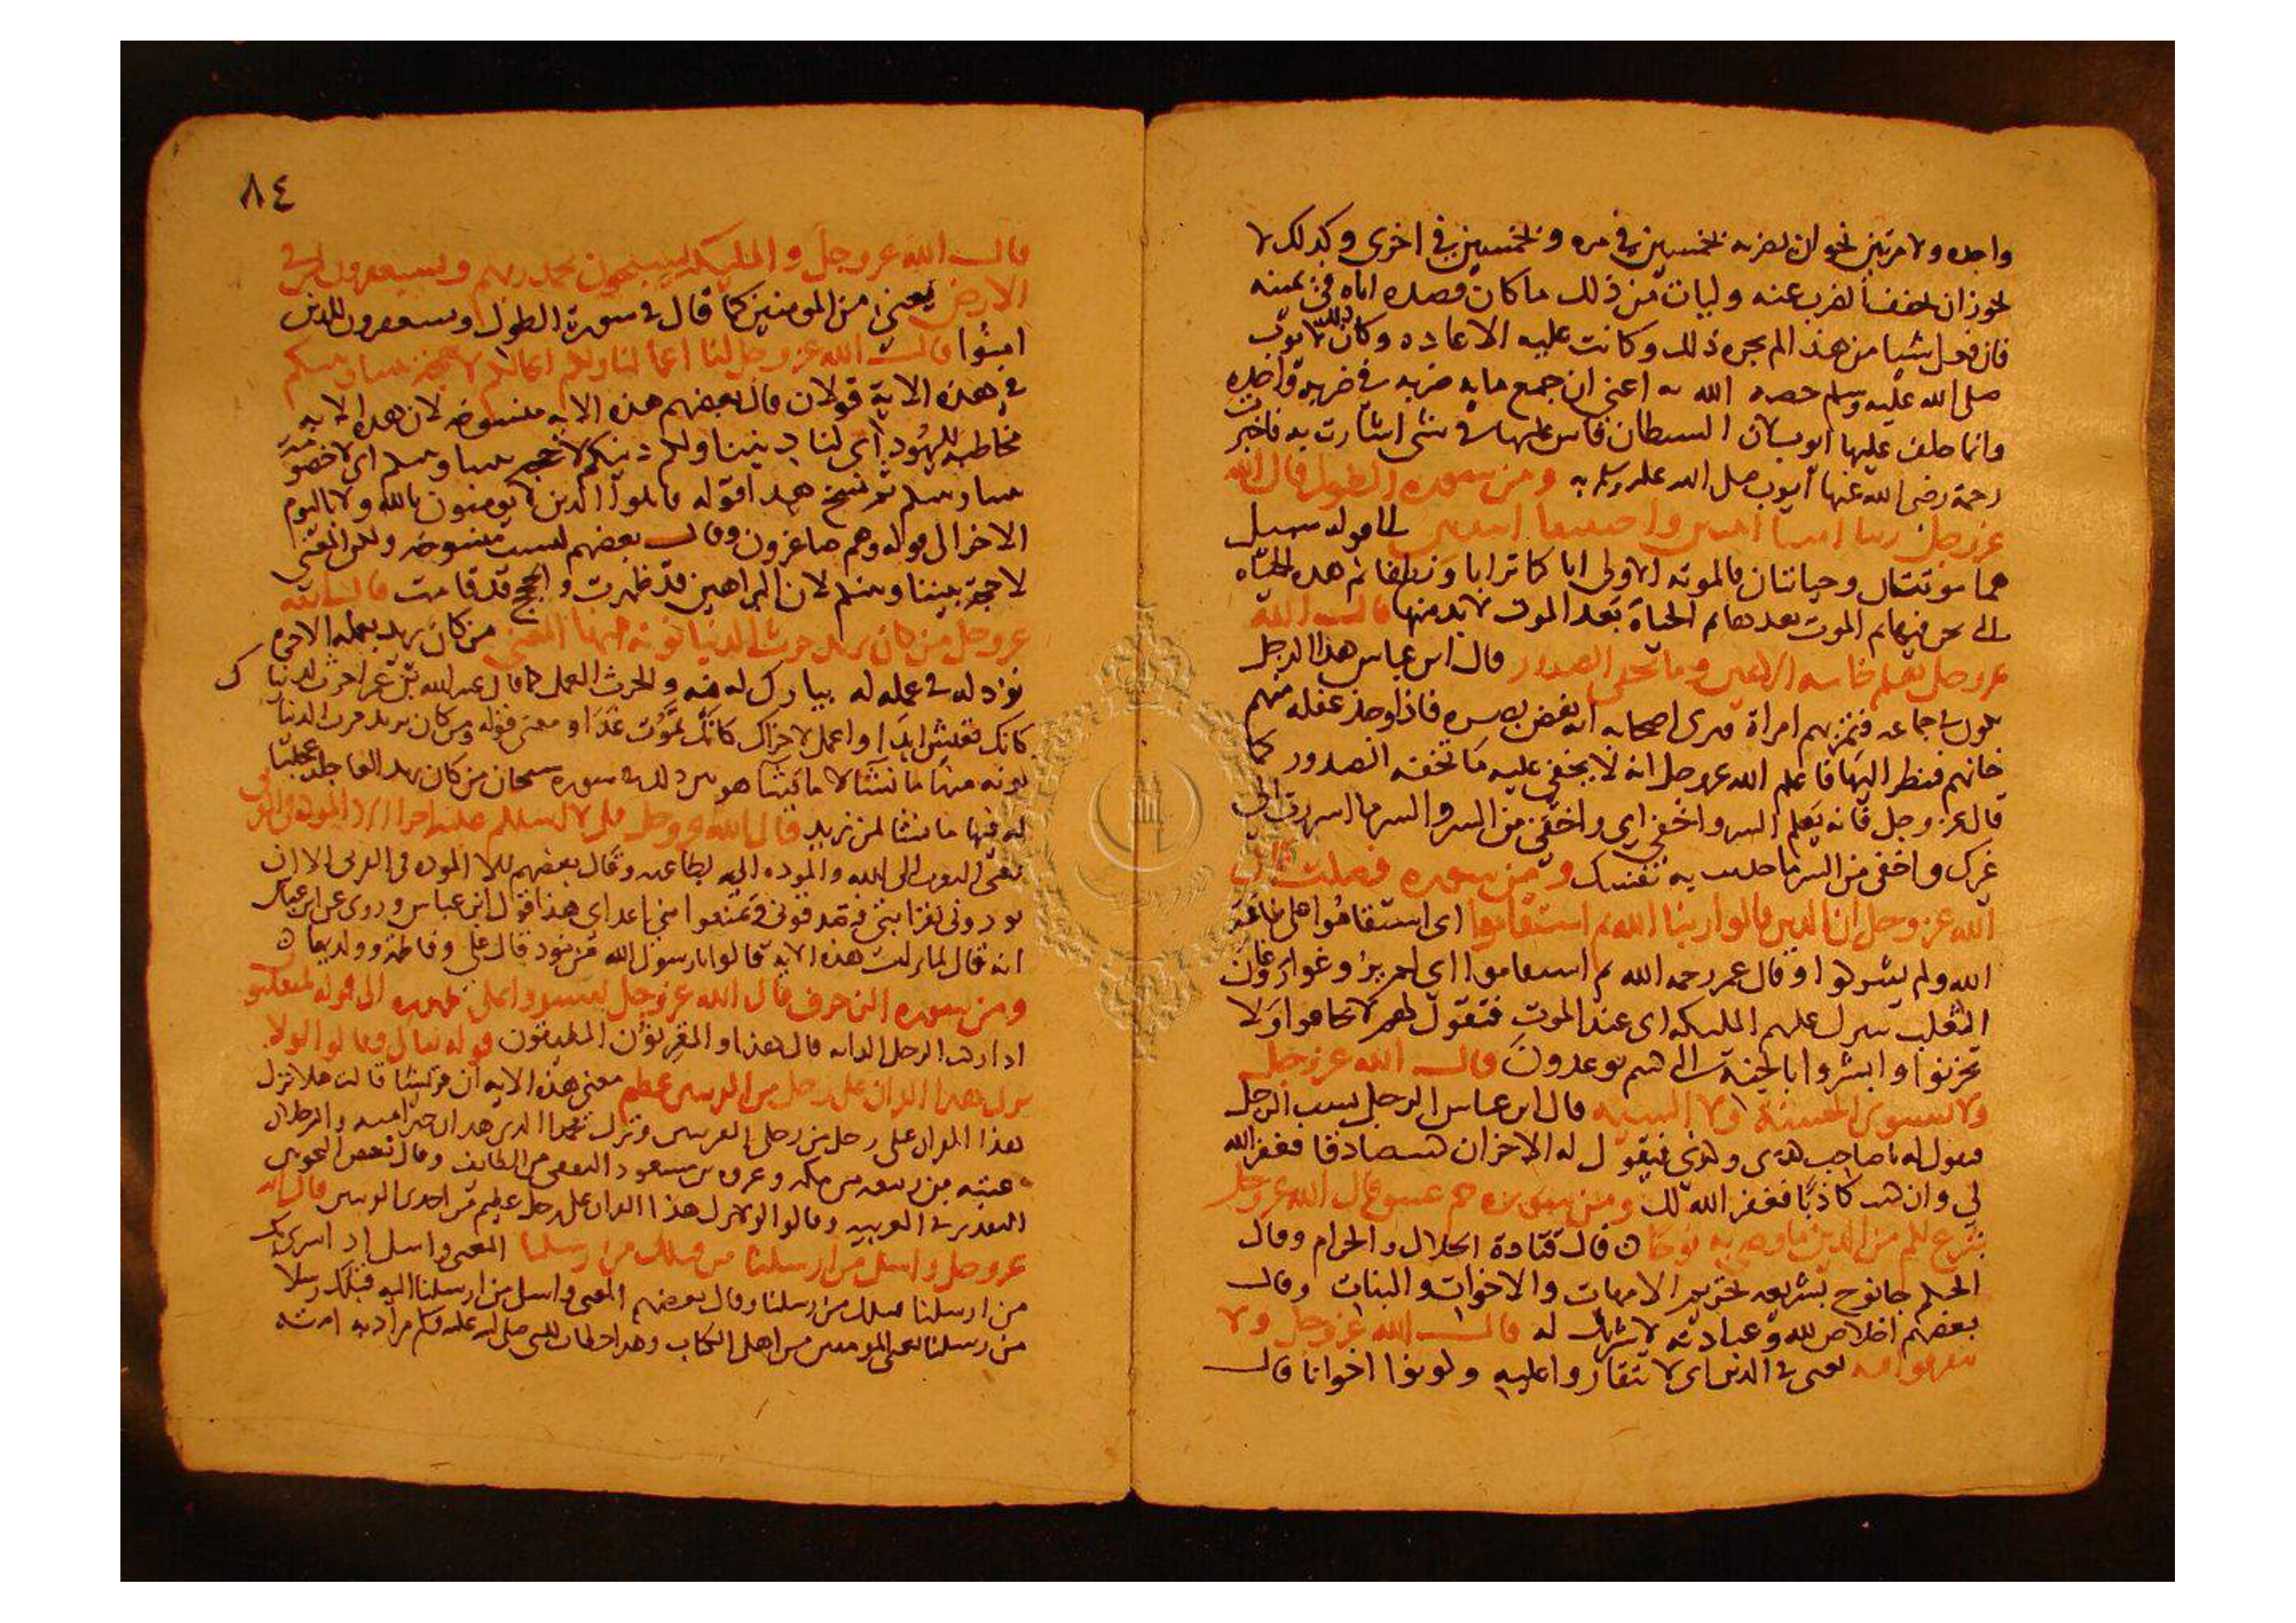 واحده ولا مرتين نحو ان يضربه بخمسين في مره وبخمسين في اخرى وكذلك لا
يجوز ان يخفف الضرب عنه وليات من ذلك ما كان قصده اياه في يمينه
فان فعل شيا من هذا لم يجزه ذلك وكانت عليه الاعاده وكان ذلك لايوب
صلى الله عليه وسلم خصه الله به اعني ان جمع مايه ضربه في ضربه واحده
وانما حلف عليها ايوب لان الشيطان في شي اشارت به فاخبرت
رحمة رضى الله عنها ايوب صلى الله عليه وسلم به ومن سوره الطول قال الله
عز وجل ربنا امتنا اثنتين واحييتنا اثنتين الى قوله سبيل
هما موتتان وحياتان فالموته الاولى اذا كنا ترابا ونطفا ثم هذه الحياه
التي نحن فيها ثم الموت بعدها ثم الحياة بعد الموت لا بد منها قال الله
عز وجل يعلم خاينه الاعين وما تخفي الصدور قال ابن عباس هذا الرجل
يكون في جماعه فتمر بهم امراة فيرى اصحابه انه يغض بصره فاذا وجد غفله منهم
خانهم فنظر اليها فاعلم الله عز وجل انه لا يخفى عليه ما تخفيه الصدور كما
قال عز وجل فانه يعلم السر واخفى اي واخفى من السر والسر ما اسررت الى
غيرك واخفى من السر ما حدثت به نفسك ومن سوره فصلت قال
الله عز وجل ان الذين قالوا ربنا الله ثم استقاموا اى استقاموا على طاعه
الله ولم يشركوا وقال عمر رحمه الله ثم استقاموا اى لم يروغوا روغان
الثعلب تتنزل عليهم المليكه اى عند الموت فتقول لهم لا تخافوا ولا
تحزنوا وابشروا بالجنة التي كنتم توعدون قال الله عز وجل
ولا تستوى الحسنة ولا السييه قال ابن عباس الرجل يسب الرجل
فيقول له يا صاحب فيقول له الاخر ان كنت صادقا فغفر الله
لي وان كنت كاذبا فغفر الله لك ومن سوره حم عسق قال الله عز وجل
شرع لكم من الدين ما وصى به نوحا قال قتادة الحلال والحرام وقال
الحكم جا نوح بشريعه تحريم الامهات والاخوات والبنات وقال
بعضهم اخلاص لله وعبادته لا شريك له قال الله عز وجل ولا
تتفرقوا فيه يعني في الدين اى لا وكونوا اخوانا قال
٨٤
قال الله عز وجل والمليكه يسبحون بحمد ربهم ويستغفرون لمن في
الارض يعني من المومنين كما قال في سورة الطول ويستغفرون للذين
امنوا قال الله عز وجل لنا اعمالنا ولكم اعمالكم لا حجة بيننا وبينكم
في هذه الاية قولان قال بعضهم هذه الايه منسوخه لان هذه الايه
مخاطبه لليهود اي لنا ديننا ولكم دينكم لا حجه بيننا وبينكم اى لا خصومة
بيننا وبينكم ثم نسخ هذا قوله قاتلوا الذين لا يومنون بالله ولا باليوم
الاخر الى قوله وهم صاغرون وقال بعضهم ليست منسوخه ولكن المعنى
لا حجة بيننا وبينكم لان البراهين قد ظهرت والحجج قد قامت قال الله
عز وجل من كان يريد حرث الدنيا نوته منها المعنى من كان يريد بعمله الاخره
نزد له في عمله له يبارك له فيه والحرث العمل كما قال عبد الله بن عمر احرث لدنياك
كانك تعيش ابدا واعمل لاخراك كانك تموت غدا ومعنى قوله ومن كان يريد حرث الدنيا
نوته منها ما نشا لا ما يشا هو ذلك في سوره سبحان من كان يريد العاجله عجلنا
له فيها ما نشا لمن نريد قال الله عز وجل قل لا اسلكم عليه اجرا الا الموده في القربى
يعني التقرب الى الله والموده اليه بطاعته وقال بعضهم الا الموده في القربى الا ان
تودوني لقرابتي هذا قول ابن عباس وروى عن ابن عباس
انه قال لما نزلت هذه الايه قالوا يا رسول الله من نود قال على وفاطمة وولديها
ومن سوره الزخرف قال الله عز وجل لتستووا على ظهوره الى قوله لمنقلبون
اذا ركب الرجل الدابه قال هذا والمقرنون المطيقون قوله تعالى وقالوا لولا
نزل هذا القران على رجل من القريتين عظيم معنى هذه الايه ان قريشا قالت هلا نزل
هذا القران على رجل من رجلي القريتين والرجلان
عتبه بن ربيعه من مكه وعروه بن مسعود الثقفي من الطايف وقال بعض النحويين
التقدير في العربيه وقالوا لولا نزل هذا القران على رجل عظيم من احدى القريتين قال الله
عز وجل واسل من ارسلنا من قبلك من رسلنا المعنى واسل
من ارسلنا قبلك من رسلنا وقال بعضهم المعنى واسل من ارسلنا اليه قبلك رسلا
من رسلنا يعني المومنين من اهل الكتاب وهذا خطاب للنبي صلى الله عليه وسلم مراد به امته